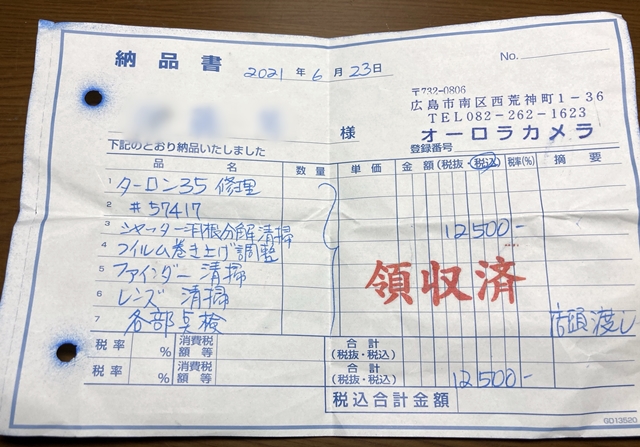 納品書
2021年6月23日
No.
〒732-0806
広島市南区西荒神町1-36
TEL082-262-1623
オーロラカメラ
様
下記のとおり納品いたしました
登録番号
品名 数量 単価 金額(税抜・税込) 税率(%) 摘要
1 ターロン35 修理
2 #57417
3 シャッター羽根分解清掃 12500-
4 フイルム巻き上げ調整
5 ファインダー清掃
領収済
6 レンズ 清掃
7 各部点検 店頭渡し
税率 % 消費税額等 合計(税抜・税込)
税率 % 消費税額等 合計(税抜・税込) 12500-
税込合計金額
GD13520